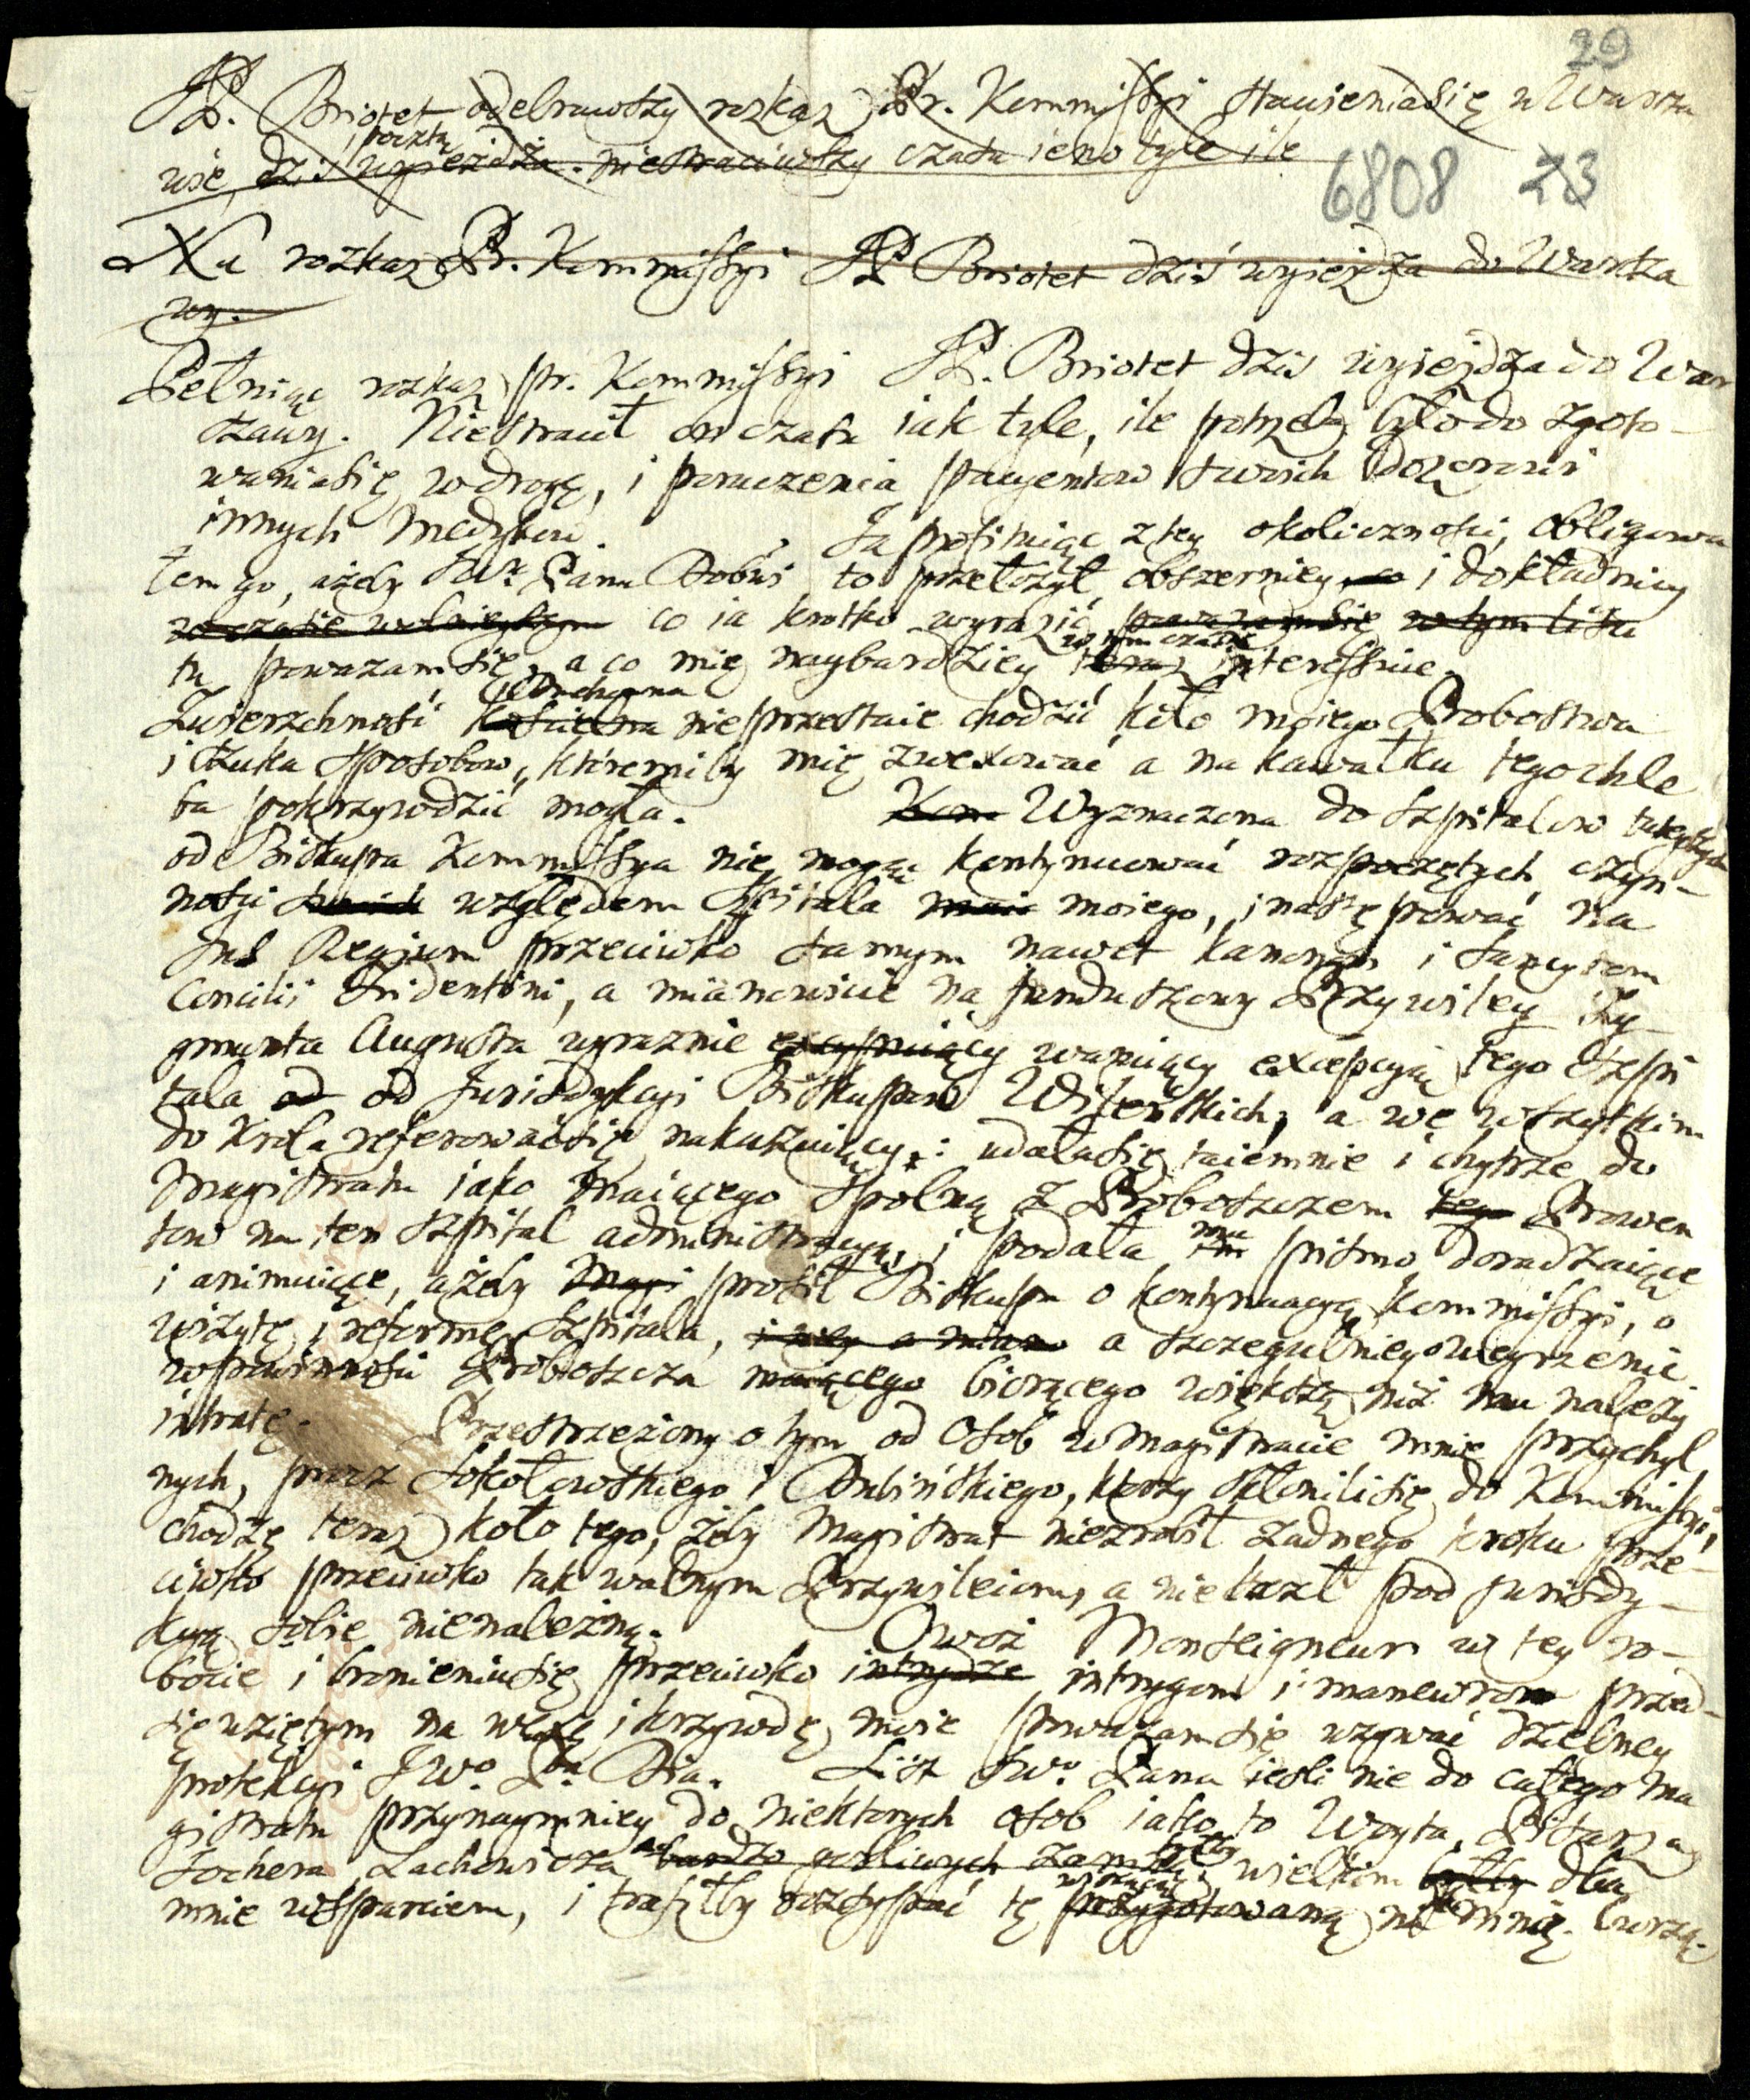 29
JP. Briotet odebrawszy rozkaz Pr. Kommissyi stawienia się w Warsza
pocztą
wie, dziś wyieżdża. niestraciwszy czasu ieno tyle ile
6808 23
Na rozkaz Pr. Kommissyi JP Briotet dziś wyieżdża do Warsza
wy.
Pełniąc rozkaz pr. Kommissyi JP. Briotet dziś wyieżdża do War
szawy. Niestracił on czasu iak tyle, ile potrzeba było do zgoto-
wania się w drogę, i poruczenia pacyentow swoich dozorowi
innych Medykow. Ja profituiąc z tey okoliczności, obligowa
łem go, ażeby JW. Panu Dobwi to przełożył obszerniey, co i dokładniey
w czasie wolnieyszym co ia krotko wyrazić poważam się w tym liście
w tym czasie
tu poważam się, a co mię naybardziey teraz interessuie.
Duchowna
Zwierzchność kościelna nieprzestaie chodzić koło moiego Probostwa
i szuka sposobow, któremiby mię zwexować a na kawałku tego chle
ba pokrzywdzić mogła. Kom Wyznaczona do Szpitalow tuteyszych
od Biskupa Kommissya nie mogąc kontynuować rozpoczętych czyn-
ności swoich względem Szpitala moiego, i nastepować na
Jus Regium przeciwko samym nawet kanonom i sancytom
Concilii Tridentini, a mianowicie na funduszowy Przywiley Zy-
gmunta Augusta wyraznie excypuiący waruiący excepcyią tego Szpi
tala od od Jurisdykcyi Biskupow Wileńskich, a we wszystkim
do Krola referować się nakazuiący: udała się taiemnie i chytrze do
Magistratu iako maiącego spolną z Proboszczem tego Prowen
tow na ten szpital administracyą, i podała
mu
im pismo doradzaiące
i animuiące, ażeby Magi prosił Biskupa o kontynuacyą Kommissyi, o
wizytę i reformę Szpitala, a szczegulniey o weyrzenie
w powinności Proboszcza maiącego biorącego większą niż mu należy
intratę. Przestrzeżony o tym od Osob w Magistracie mnie przychyl
nych, przez Sokołowskiego i Dubińskiego, ktorzy skłonili się do Kommissyi,
chodzę teraz koło tego, żeby Magistrat niezrobił żadnego kroku prze-
ciwko przeciwko tak walnym Przywileiom, a nielazł pod jurisdy-
kcyą sobie nienależną. Owoż Monseigneur w tey ro-
bocie i bronieniu się przeciwko intrydze intrygom i manewrom przed-
sięwziętym na wexę i krzywdę moie poważam się wzywać dzielney
protekcyi JWo. Pa Dia. List JWo. Pana iesli nie do całego Ma
gistratu przynaymniey do niektorych osob iako to Woyta, Pisarza
byłby
Jochera, Lachowicza bardzo gorliwych wielkim byłby dla
wiszącą
mnie wsparciem, i trafiłby rozsypać tę przygotowaną na mnie burzą.